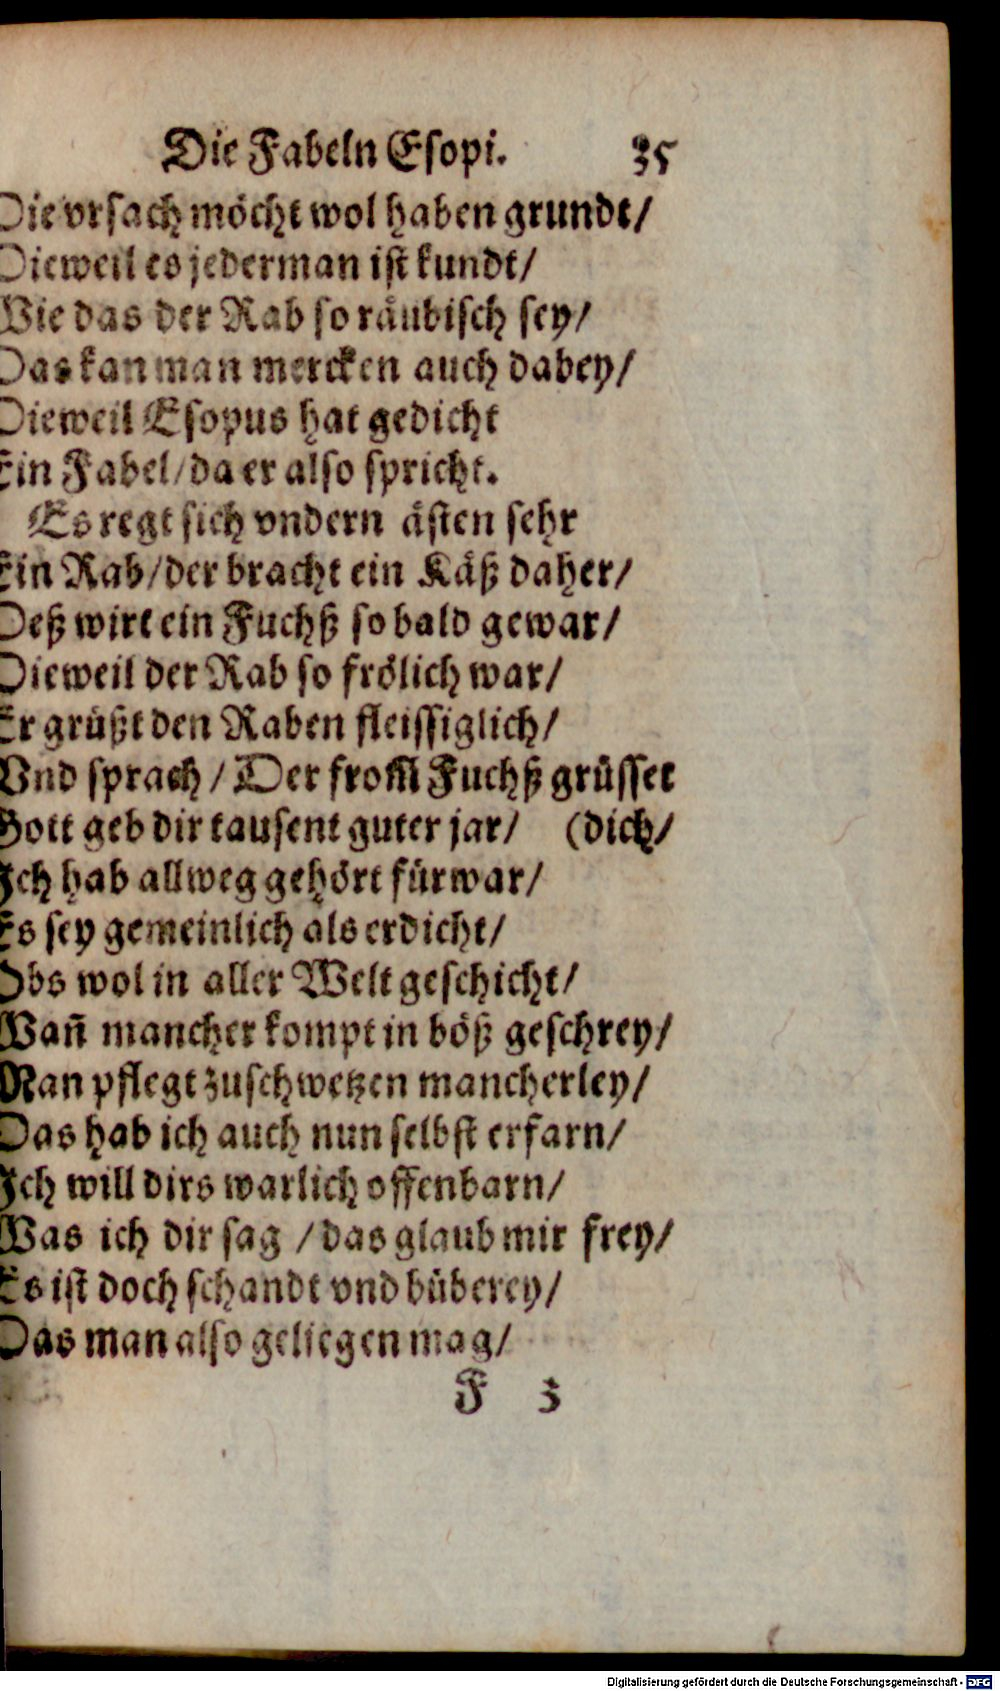 Die Fabeln Esopi. 35
Die vrsach möcht wol haben grundt/
Dieweil es jederman ist kundt/
Wie das der Rab so räubisch sey/
Das kan man mercken auch dabey/
Dieweil Esopus hat gedicht
Ein Fabel/da er also spricht.
Es regt sich vndern ästen sehr
Ein Rab/der bracht ein Käß daher/
Deß wirt ein Fuchß so bald gewar/
Dieweil der Rab so frölich war/
Er grüßt den Raben fleissiglich/
Vnd sprach/Der from̃ Fuchß grüsset
Gott geb dir tausent guter jar/ (dich/
Ich hab allweg gehört fürwar/
Es sey gemeinlich als erdicht/
Obs wol in aller Welt geschicht/
Wañ mancher kompt in böß geschrey/
Man pflegt zuschwetzen mancherley/
Das hab ich auch nun selbst erfarn/
Ich will dirs warlich offenbarn/
Was ich dir sag/das glaub mir frey/
Es ist doch schandt vnd büberey/
Das man also geliegen mag/
F 3
Digitalisierung gefördert durch die Deutsche Forschungsgemeinschaft - DFG